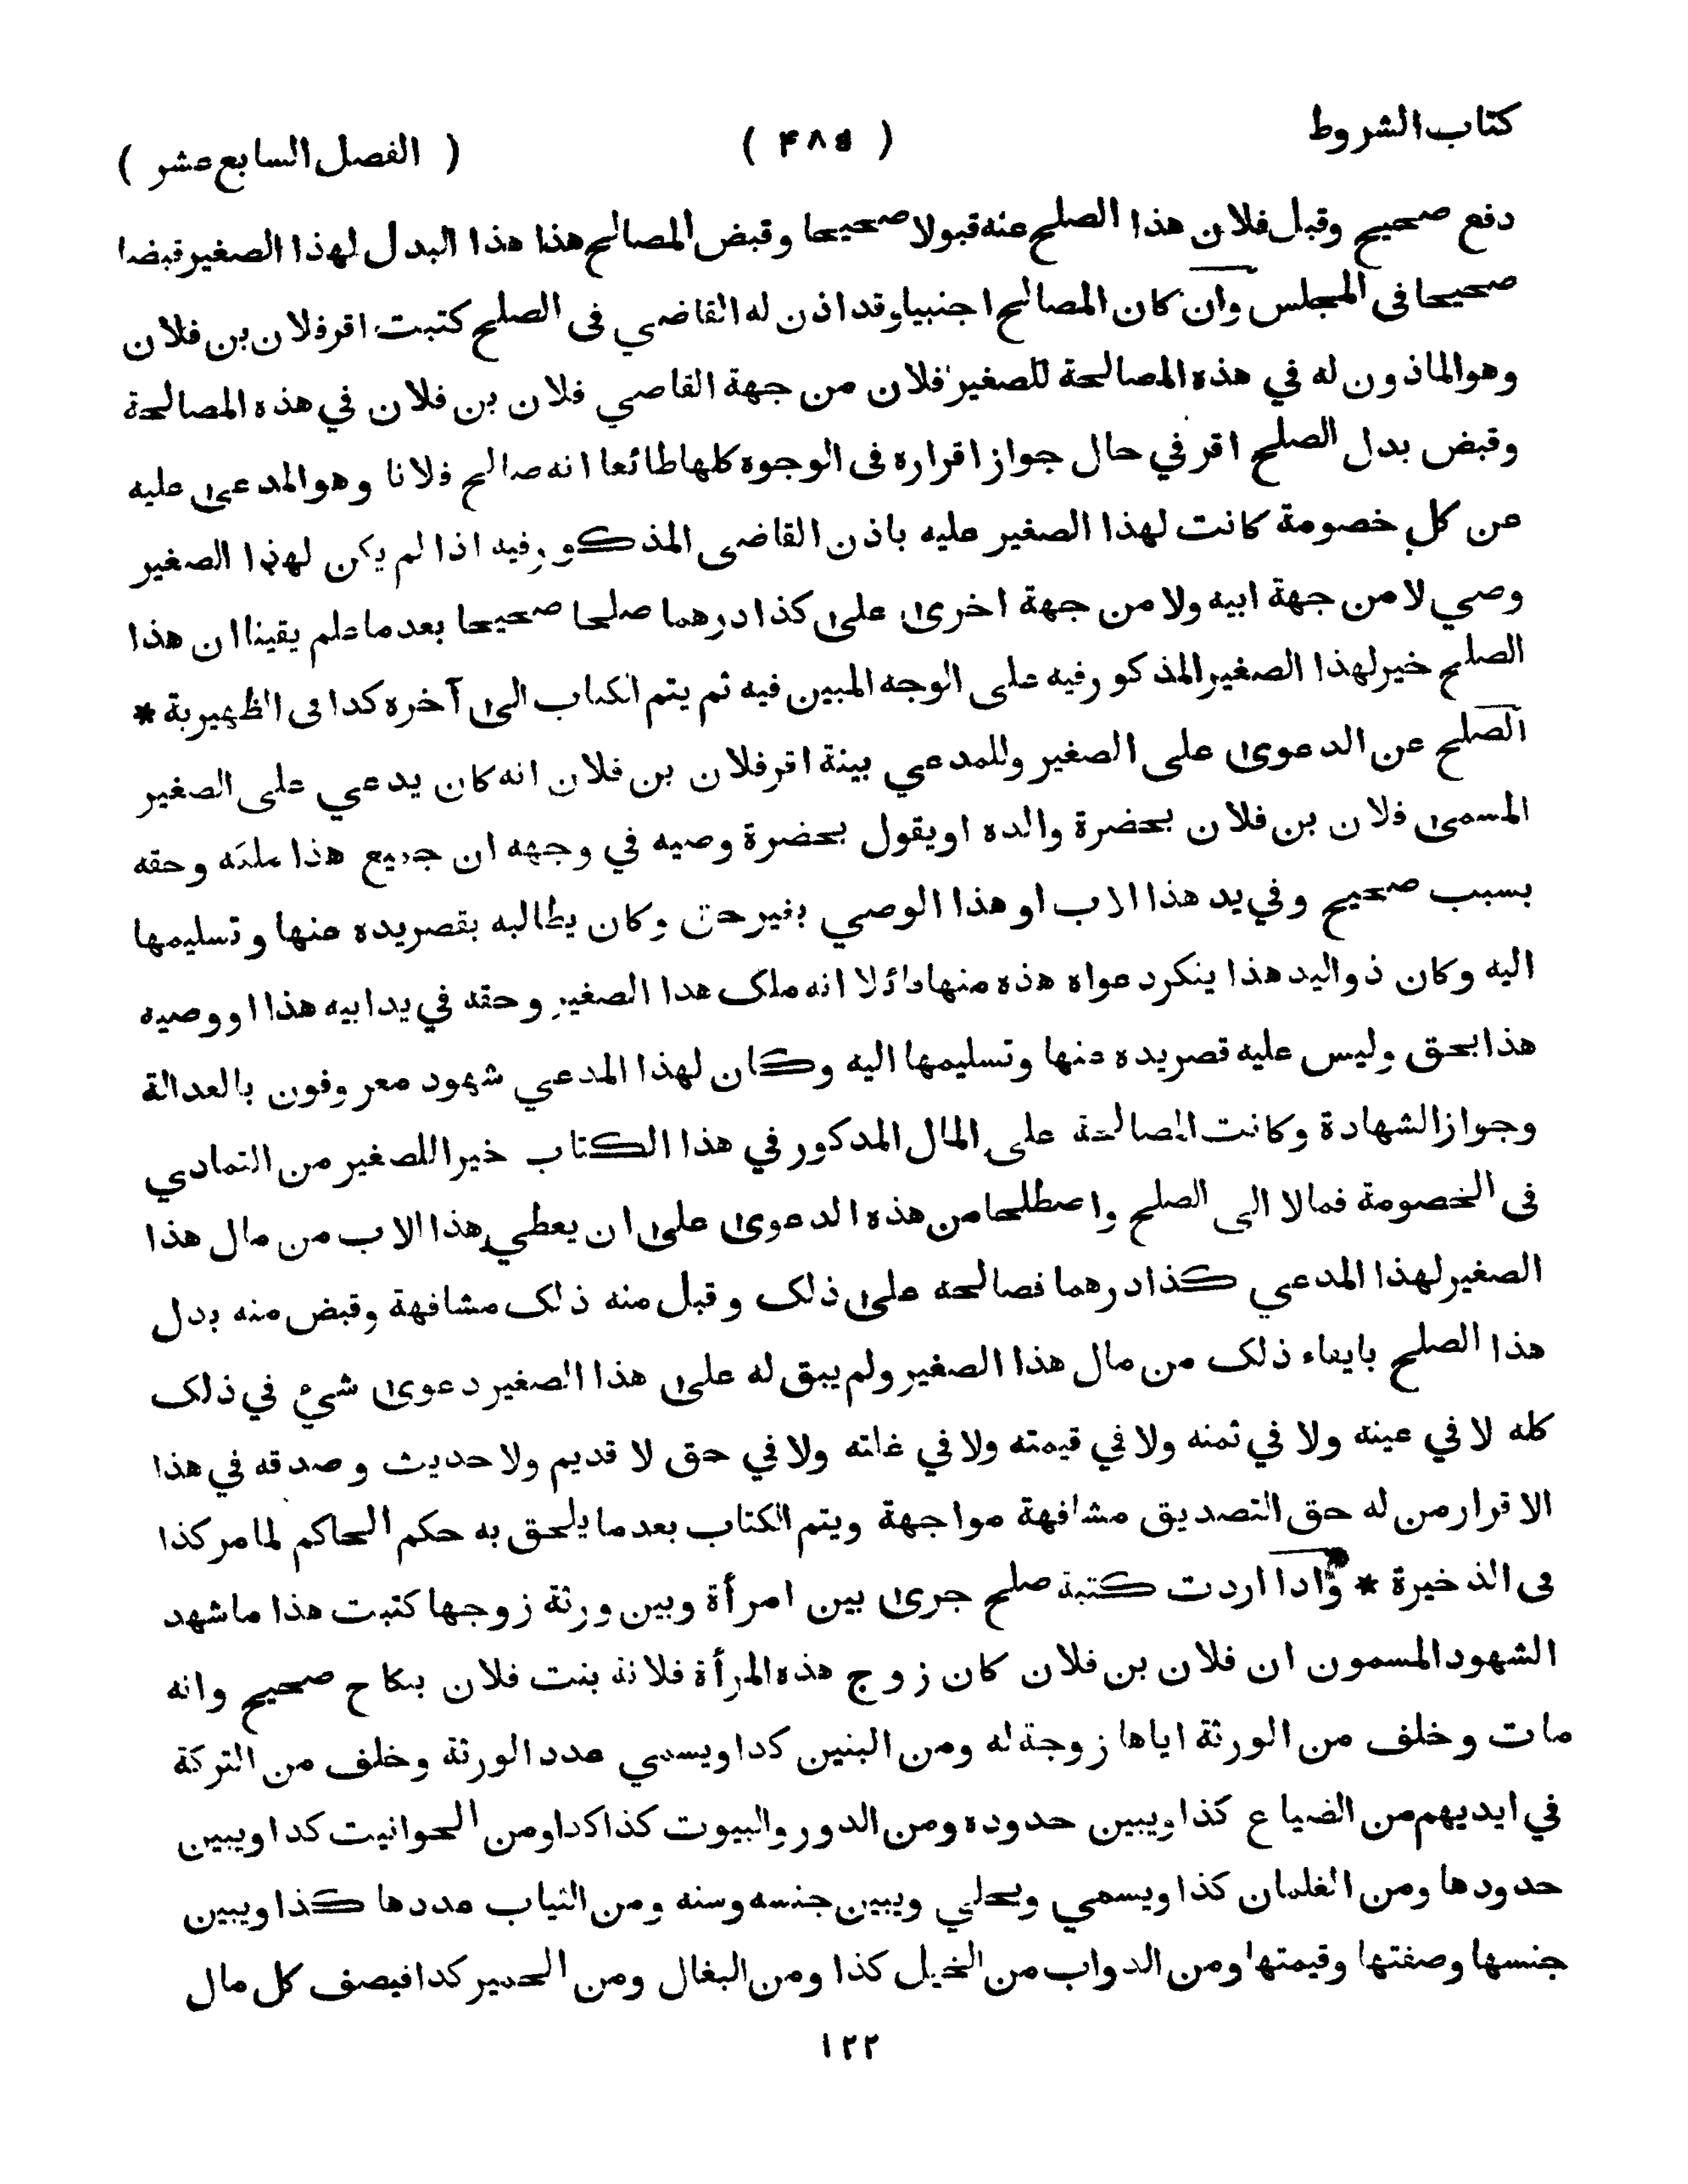 كتاب الشروط ( ۴۸۵ ) ( الفصل السابع عشر )
دفع صحيح وقبل فلان هذا الصلح عنه قبولا صحيحا وقبض المصالح هذا هذا البدل لهذا الصغير قبضا
صحيحا فى المجلس وان كان المصالح اجنبيا وقد اذن له القاضي فى الصلح كتبت اقر فلان بن فلان
وهو الماذون له في هذه المصالحة للصغير فلان من جهة القاصي فلان بن فلان في هذه المصالحة
وقبض بدل الصلح اقر في حال جواز اقراره فى الوجوه كلها طائعا انه صالح فلانا وهو المدعى عليه
عن كل خصومة كانت لهذا الصغير عليه باذن القاضى المذكور فيه اذا لم يكن لهذا الصغير
وصي لا من جهة ابيه ولا من جهة اخرى على كذا درهما صلحا صحيحا بعد ما علم يقينا ان هذا
الصلح خير لهذا الصغير المذكور فيه على الوجه المبين فيه ثم يتم الكتاب الى آخره كدا فى الظهيرية *
الصلح عن الدعوى على الصغير وللمدعي بينة اقر فلان بن فلان انه كان يدعي على الصغير
المسمى فلان بن فلان بحضرة والده او يقول بحضرة وصيه في وجهه ان جميع هذا ملكه وحقه
بسبب صحيح وفي يد هذا الاب او هذا الوصي بغير حق وكان يطالبه بقصر يده عنها وتسليمها
اليه وكان ذو اليد هذا ينكر دعواه هذه منها قائلا انه ملك هدا الصغير وحقه في يد ابيه هذا او وصيه
هذا بحق وليس عليه قصر يده عنها وتسليمها اليه وكان لهذا المدعي شهود معروفون بالعدالة
وجواز الشهادة وكانت المصالحة على المال المدكور في هذا الكتاب خيرا للصغير من التمادي
فى الخصومة فمالا الى الصلح واصطلحا من هذه الدعوى على ان يعطي هذا الاب من مال هذا
الصغير لهذا المدعي كذا درهما فصالحه على ذلك وقبل منه ذلك مشافهة وقبض منه بدل
هذا الصلح بايفاء ذلك من مال هذا الصغير ولم يبق له على هذا الصغير دعوى شيء في ذلك
كله لا في عينه ولا في ثمنه ولا في قيمته ولا في غلته ولا في حق لا قديم ولا حديث وصدقه في هذا
الاقرار من له حق التصديق مشافهة مواجهة ويتم الكتاب بعد ما يلحق به حكم الحاكم لما مر كذا
فى الذخيرة * واذا اردت كتبة صلح جرى بين امرأة وبين ورثة زوجها كتبت هذا ما شهد
الشهود المسمون ان فلان بن فلان كان زوج هذه المرأة فلانة بنت فلان بنكاح صحيح وانه
مات وخلف من الورثة اياها زوجة له ومن البنين كدا ويسمي عدد الورثة وخلف من التركة
في ايديهم من الضياع كذا ويبين حدوده ومن الدور والبيوت كذا كدا ومن الحوانيت كدا ويبين
حدودها ومن الغلمان كذا ويسمي ويحلي ويبين جنسه وسنه ومن الثياب عددها كذا ويبين
جنسها وصفتها وقيمتها ومن الدواب من الخيل كذا ومن البغال ومن الحمير كدا فيصف كل مال
١٢٢